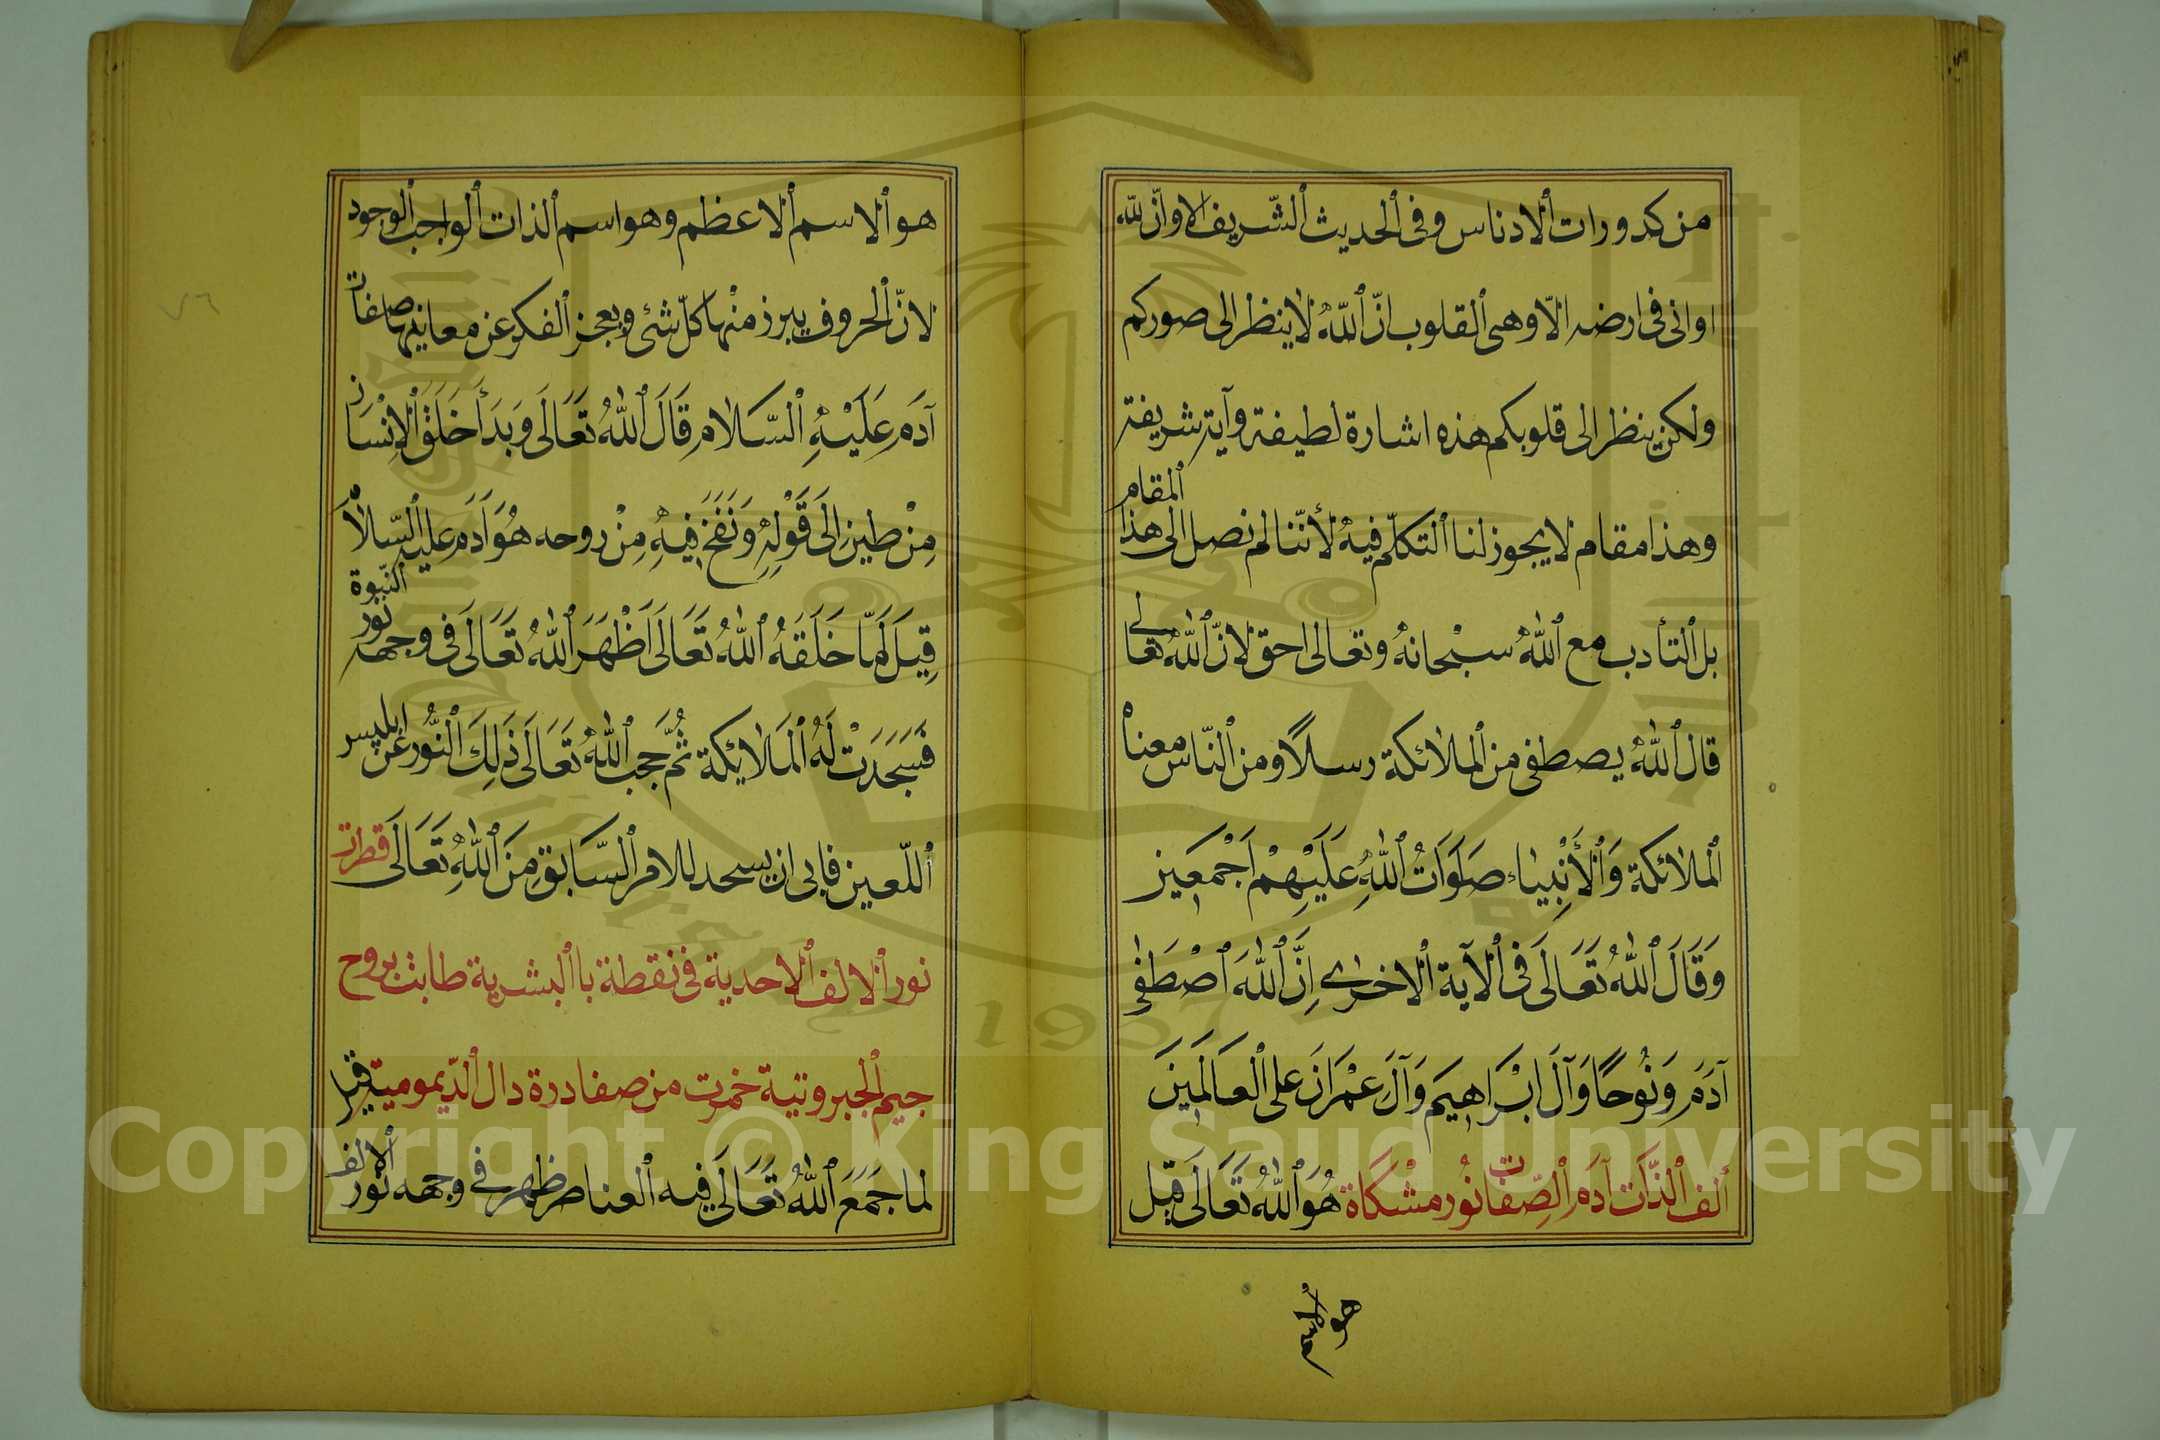 من كدورات ٱلادناس وفى ٱلحديث ٱلشّريف الا وانّ للّٰه
اوانى فى ارضه الّا وهى ٱلقلوب انّ ٱللّٰهُ لا ينظر الى صوركم
ولكن ينظر الى قلوبكم هذه اشارة لطيفة وآية شريفة
وهذا مقام لا يجوز لنا ٱلتكلّم فيهُ لأنّنا لم نصل الى هذا ٱلمقام
بل ٱلتأدب مع ٱللّٰهُ سبْحانهُ وتعالى احق لانّ ٱللّٰهُ تعالى
قال ٱللّٰهُ يصطفى من ٱلملائكة رسلًا ومن ٱلنّاس معناهْ
ٱلملائكة وَٱلأَنْبِياء صَلَوَاتُ ٱللّٰهُ عَلَيْهِمْ اَجْمَعِين
وَقَالَ ٱللّٰهُ تَعَالَى فى ٱلآية ٱلاخرى اِنَّ ٱللّٰهَ ٱصْطَفٰى
آدَمَ وَنُوحًا وَآلَ ابْرَاهِيمَ وَآلَ عِمْرَانَ على ٱلعَالَمِينَ
ٱلف ٱلذّات آدَم ٱلصّفات نُور مشْكَاة هُوَ ٱللّٰهُ تَعَالَى قيل
هو ٱلاسم
هو ٱلاسم ٱلاعظم وهو اسم ٱلذات ٱلواجب ٱلوجود
لانّ ٱلحروف يبرز منْها كلّ شئ ويعجز ٱلفكر عن معانيها صفات
آدَم عَلَيْهِ ٱلسَّلام قَالَ ٱللّٰهُ تَعَالَى وَبَدَأَ خَلَقَ ٱلاِنْسَان
مِنْ طين اِلَى قَوْلِهِ وَنَفَخَ فِيهِ مِنْ روحه هُوَ آدَم عليه ٱلسّلام
قِيلَ لَمّا خَلَقَهُ ٱللّٰهُ تَعَالَى اَظْهَرَ ٱللّٰهُ تَعَالَى فى وجهه نور ٱلنّبوة
فَسَجَدَتْ لَهُ ٱلمَلائِكة ثُمَّ حجب ٱللّٰهُ تَعَالَى ذَلِكَ ٱلنُّور عَن ابليس
ٱللّعين فابى ان يسجد للامر ٱلسَّابق مِنَ ٱللّٰهِ تَعَالَى قطرات
نور ٱلالف ٱلاحدية فى نقطة با ٱلبشرية طابت بروح
جيم ٱلجبروتية خمرت من صفا درة دال ٱلدّيمومية قيل
لما جَمَعَ ٱللّٰهُ تَعَالَى فيه ٱلعناصر ظهر فى وجهه نور ٱلالف
Copyright © King Saud University
1957